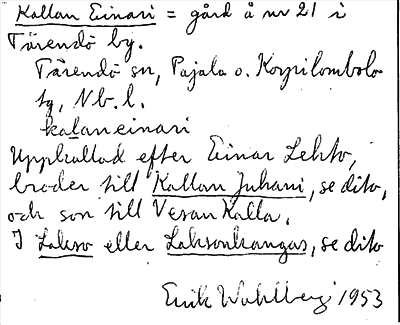 Kallan Einari = gård å nr 21 i
Tärendö by.
Tärendö sn, Pajala o. Korpilombolo
tg, Nb. l.
kalan einari
Uppkallad efter Einar Lehto,
broder till Kallan Juhani, se dito,
och son till Vesan Kalla.
I Lakso eller Laksonkangas, se dito
Erik Wahlberg 1953